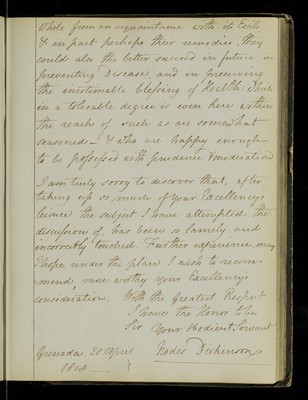 while from an acquaintance with its Evils
& in part perhaps their remedies, they
could also the better succeed in future in
preventing Disease, and in preserving
the inestimable blessing of Health, which
in a tolerable degree is even here within
the reach of such as are somewhat
seasoned — & who are happy enough
to be possessed with prudence & moderation
I am truly sorry to discover that, after
taking up so much of your Excellency's
leisure the subject I have attempted the
discussion of, has been so lamely and
incorrectly touched. Further experience, may
I hope, under the plan I wish to recom-
mend, more worthy your Excellency's
consideration. With the Greatest Respect
I have the Honor to be
Sir Your Obedient Servant
Grenada, 20 April
Nodes Dickinson